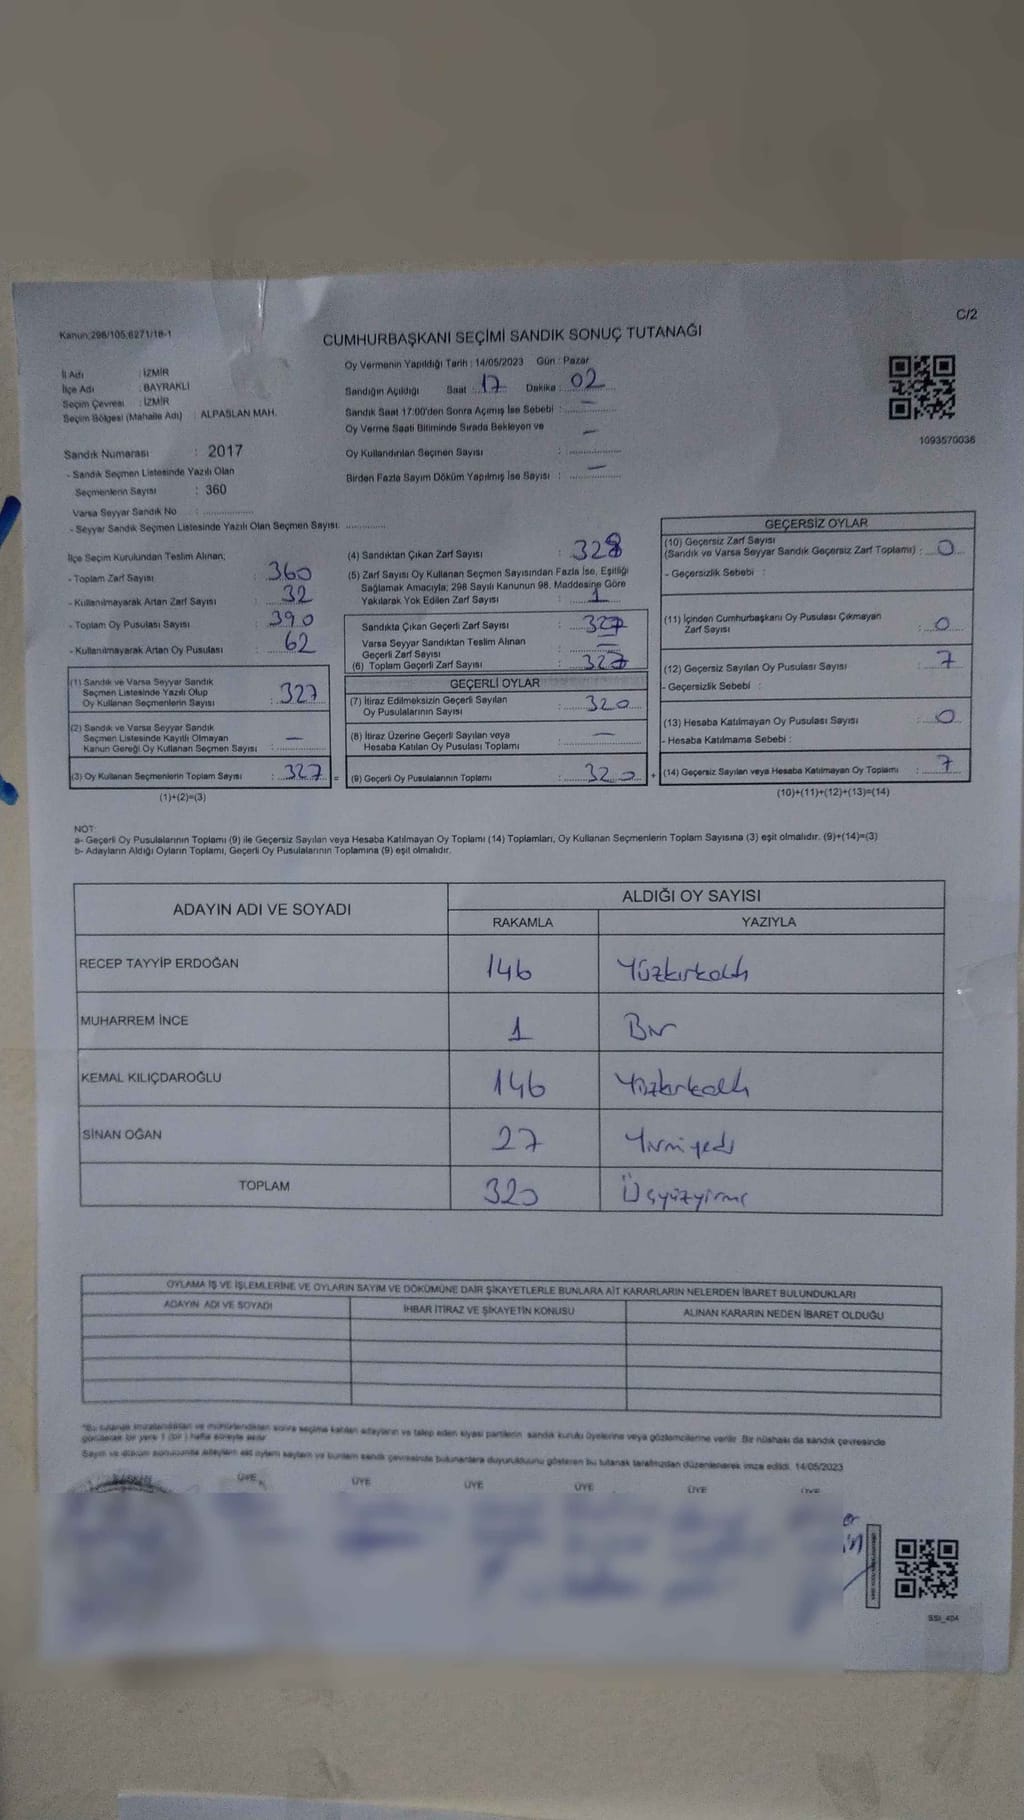 C/2
Kanun:298/105,6271/18-1
CUMHURBAŞKANI SEÇİMİ SANDIK SONUÇ TUTANAĞI
İl Adı : İZMİR
İlçe Adı : BAYRAKLI
Seçim Çevresi : İZMİR
Seçim Bölgesi (Mahalle Adı) : ALPASLAN MAH.
Sandık Numarası : 2017
- Sandık Seçmen Listesinde Yazılı Olan
Seçmenlerin Sayısı : 360
Varsa Seyyar Sandık No :
- Seyyar Sandık Seçmen Listesinde Yazılı Olan Seçmen Sayısı:
Oy Vermenin Yapıldığı Tarih : 14/05/2023 Gün : Pazar
Sandığın Açıldığı Saat : 17 Dakika : 02
Sandık Saat 17:00'den Sonra Açılmış İse Sebebi : —
Oy Verme Saati Bitiminde Sırada Bekleyen ve
Oy Kullandırılan Seçmen Sayısı : —
Birden Fazla Sayım Döküm Yapılmış İse Sayısı : —
1093570036
İlçe Seçim Kurulundan Teslim Alınan;
- Toplam Zarf Sayısı : 360
- Kullanılmayarak Artan Zarf Sayısı : 32
- Toplam Oy Pusulası Sayısı : 390
- Kullanılmayarak Artan Oy Pusulası : 62
(1) Sandık ve Varsa Seyyar Sandık
Seçmen Listesinde Yazılı Olup
Oy Kullanan Seçmenlerin Sayısı : 327
(2) Sandık ve Varsa Seyyar Sandık
Seçmen Listesinde Kayıtlı Olmayan
Kanun Gereği Oy Kullanan Seçmen Sayısı : —
(3) Oy Kullanan Seçmenlerin Toplam Sayısı : 327 =
(1)+(2)=(3)
(4) Sandıktan Çıkan Zarf Sayısı : 328
(5) Zarf Sayısı Oy Kullanan Seçmen Sayısından Fazla İse, Eşitliği
Sağlamak Amacıyla; 298 Sayılı Kanunun 98. Maddesine Göre
Yakılarak Yok Edilen Zarf Sayısı : 1
Sandıkta Çıkan Geçerli Zarf Sayısı : 327
Varsa Seyyar Sandıktan Teslim Alınan
Geçerli Zarf Sayısı : —
(6) Toplam Geçerli Zarf Sayısı : 327
GEÇERLİ OYLAR
(7) İtiraz Edilmeksizin Geçerli Sayılan
Oy Pusulalarının Sayısı : 320
(8) İtiraz Üzerine Geçerli Sayılan veya
Hesaba Katılan Oy Pusulası Toplamı : —
(9) Geçerli Oy Pusulalarının Toplamı : 320 +
GEÇERSİZ OYLAR
(10) Geçersiz Zarf Sayısı
(Sandık ve Varsa Seyyar Sandık Geçersiz Zarf Toplamı) : 0
- Geçersizlik Sebebi :
(11) İçinden Cumhurbaşkanı Oy Pusulası Çıkmayan
Zarf Sayısı : 0
(12) Geçersiz Sayılan Oy Pusulası Sayısı : 7
- Geçersizlik Sebebi :
(13) Hesaba Katılmayan Oy Pusulası Sayısı : 0
- Hesaba Katılmama Sebebi :
(14) Geçersiz Sayılan veya Hesaba Katılmayan Oy Toplamı : 7
(10)+(11)+(12)+(13)=(14)
NOT:
a- Geçerli Oy Pusulalarının Toplamı (9) ile Geçersiz Sayılan veya Hesaba Katılmayan Oy Toplamı (14) Toplamları, Oy Kullanan Seçmenlerin Toplam Sayısına (3) eşit olmalıdır. (9)+(14)=(3)
b- Adayların Aldığı Oyların Toplamı, Geçerli Oy Pusulalarının Toplamına (9) eşit olmalıdır.
ADAYIN ADI VE SOYADI
ALDIĞI OY SAYISI
RAKAMLA YAZIYLA
RECEP TAYYİP ERDOĞAN 146 Yüzkırkaltı
MUHARREM İNCE 1 Bir
KEMAL KILIÇDAROĞLU 146 Yüzkırkaltı
SİNAN OĞAN 27 Yirmiyedi
TOPLAM 320 Üçyüzyirmi
OYLAMA İŞ VE İŞLEMLERİNE VE OYLARIN SAYIM VE DÖKÜMÜNE DAİR ŞİKAYETLERLE BUNLARA AİT KARARLARIN NELERDEN İBARET BULUNDUKLARI
ADAYIN ADI VE SOYADI İHBAR İTİRAZ VE ŞİKAYETİN KONUSU ALINAN KARARIN NEDEN İBARET OLDUĞU
"Bu tutanak imzalandıktan ve mühürlendikten sonra seçime katılan adayların ve talep eden siyasi partilerin sandık kurulu üyelerine veya gözlemcilerine verilir. Bir nüshası da sandık çevresinde
görülecek bir yere 1 (bir) hafta süreyle asılır.
Sayım ve döküm sonucunda adayların aldığı oyların sayılarını ve bunların sandık çevresinde bulunanlara duyurulduğunu gösteren bu tutanak tarafımızdan düzenlenerek imza edildi. 14/05/2023
BAŞKAN ÜYE ÜYE ÜYE ÜYE ÜYE ÜYE
SSI_404